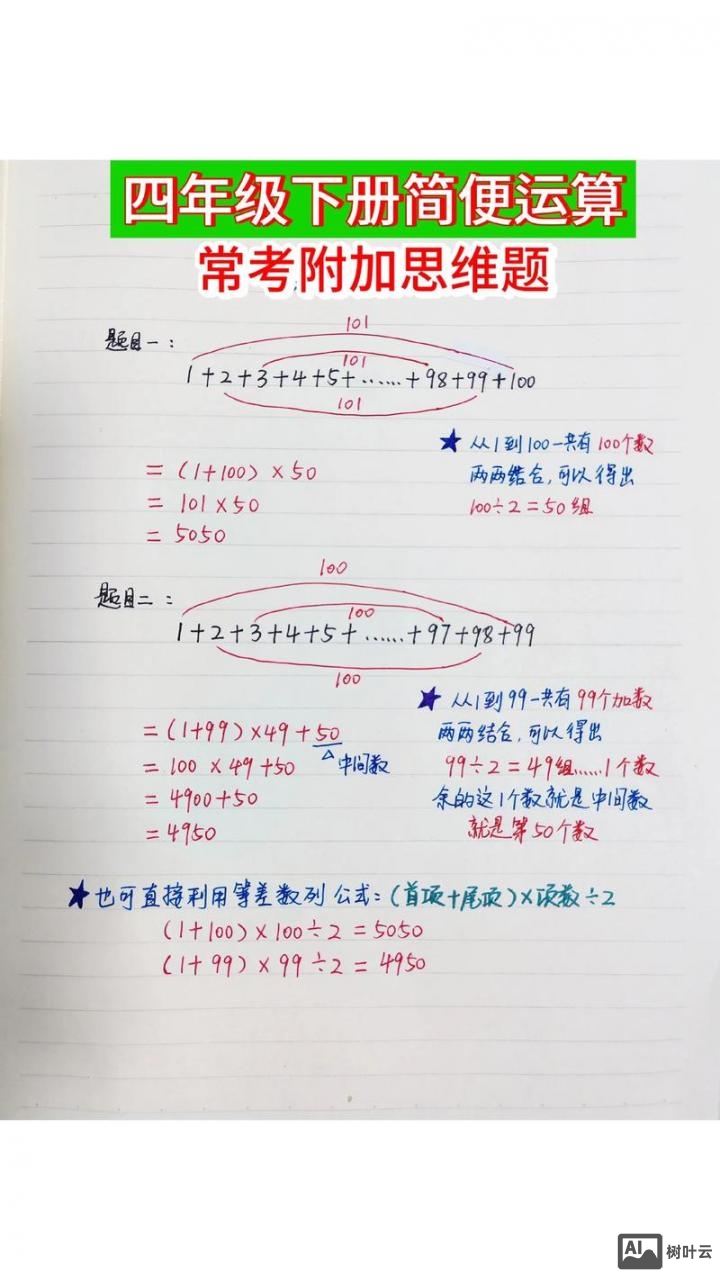 四年级下册简便运算
常考附加思维题
题目一:
101
101
1+2+3+4+5+……+98+99+100
101
=(1+100)×50
=101×50
=5050
★从1到100一共有100个数
两两结合,可以得出
100÷2=50组
题目二:
100
100
1+2+3+4+5+……+97+98+99
100
=(1+99)×49+50
△中间数
=100×49+50
=4900+50
=4950
★从1到99一共有99个加数
两两结合,可以得出
99÷2=49组……1个数
余的这1个数就是中间数
就是第50个数
★也可直接利用等差数列公式:(首项+尾项)×项数÷2
(1+100)×100÷2=5050
(1+99)×99÷2=4950
AI 树叶云